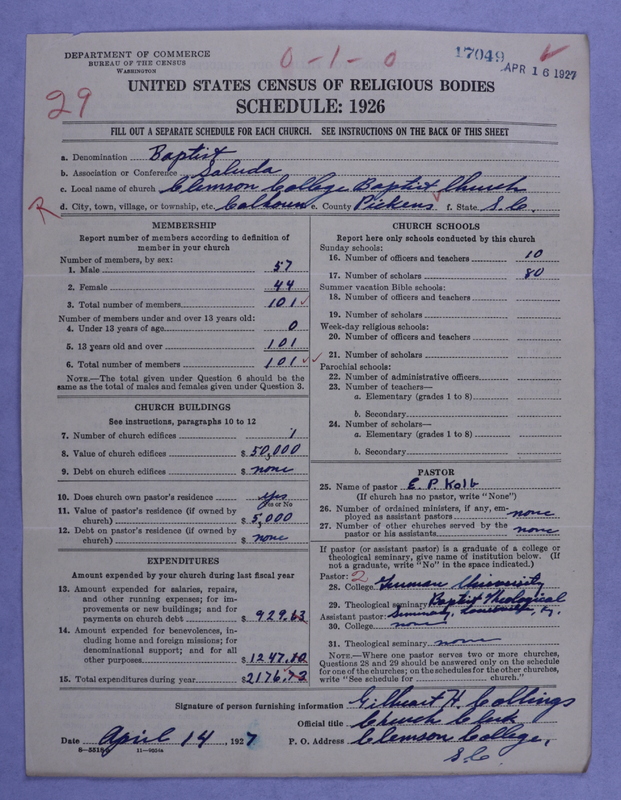 DEPARTMENT OF COMMERCE
BUREAU OF THE CENSUS
WASHINGTON
0-1-0
17049
APR 16 1927
29
UNITED STATES CENSUS OF RELIGIOUS BODIES
SCHEDULE: 1926
FILL OUT A SEPARATE SCHEDULE FOR EACH CHURCH. SEE INSTRUCTIONS ON THE BACK OF THIS SHEET
a. Denomination Baptist
b. Association or Conference Saluda
c. Local name of church Clemson College Baptist Church
R d. City, town, village, or township, etc. Calhoun e. County Pickens f. State S.C.
MEMBERSHIP
Report number of members according to definition of
member in your church
Number of members, by sex:
1. Male 57
2. Female 44
3. Total number of members 101 ✓
Number of members under and over 13 years old:
4. Under 13 years of age 0
5. 13 years old and over 101
6. Total number of members 101 ✓ ✓
NOTE.—The total given under Question 6 should be the
same as the total of males and females given under Question 3.
CHURCH BUILDINGS
See instructions, paragraphs 10 to 12
7. Number of church edifices 1
8. Value of church edifices $ 50,000
9. Debt on church edifices $ none
10. Does church own pastor's residence yes
Yes or No
11. Value of pastor's residence (if owned by
church) $ 5,000
12. Debt on pastor's residence (if owned by
church) $ none
EXPENDITURES
Amount expended by your church during last fiscal year
13. Amount expended for salaries, repairs,
and other running expenses; for im-
provements or new buildings; and for
payments on church debt $ 929.63
14. Amount expended for benevolences, in-
cluding home and foreign missions; for
denominational support; and for all
other purposes $ 1247.
15. Total expenditures during year $ 2176.
CHURCH SCHOOLS
Report here only schools conducted by this church
Sunday schools:
16. Number of officers and teachers 10
17. Number of scholars 80
Summer vacation Bible schools:
18. Number of officers and teachers
19. Number of scholars
Week-day religious schools:
20. Number of officers and teachers
21. Number of scholars
Parochial schools:
22. Number of administrative officers
23. Number of teachers—
a. Elementary (grades 1 to 8)
b. Secondary
24. Number of scholars—
a. Elementary (grades 1 to 8)
b. Secondary
PASTOR
25. Name of pastor E. P. Kolb
(If church has no pastor, write "None")
26. Number of ordained ministers, if any, em-
ployed as assistant pastors none
27. Number of other churches served by the
pastor or his assistants none
If pastor (or assistant pastor) is a graduate of a college or
theological seminary, give name of institution below. (If
not a graduate, write "No" in the space indicated.)
Pastor: 2
28. College Furman University
29. Theological seminary Baptist Theological
Seminary, Louisville, Ky.
Assistant pastor:
30. College none
31. Theological seminary none
NOTE.—Where one pastor serves two or more churches,
Questions 28 and 29 should be answered only on the schedule
for one of the churches; on the schedules for the other churches,
write "See schedule for church."
Signature of person furnishing information Gilbeart H. Collings
Official title Church Clerk
Date April 14, 1927 P. O. Address Clemson College,
S.C.
8—5518